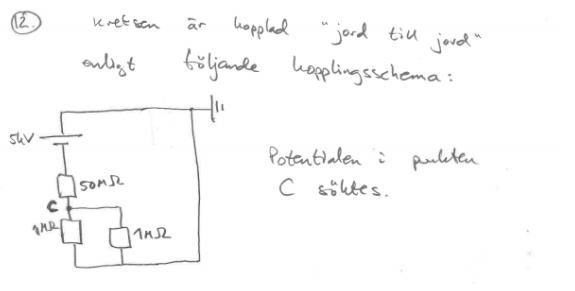 12. Kretsen är kopplad "jord till jord"
enligt följande kopplingsschema:
5kV
50MΩ
C
1MΩ
1MΩ
Potentialen i punkten
C söktes.